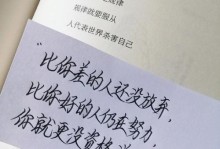 规律就要服从
人代表世界杀害自己
“比你差的人还没放弃,
比你好的人仍在努力,
你就更没资格